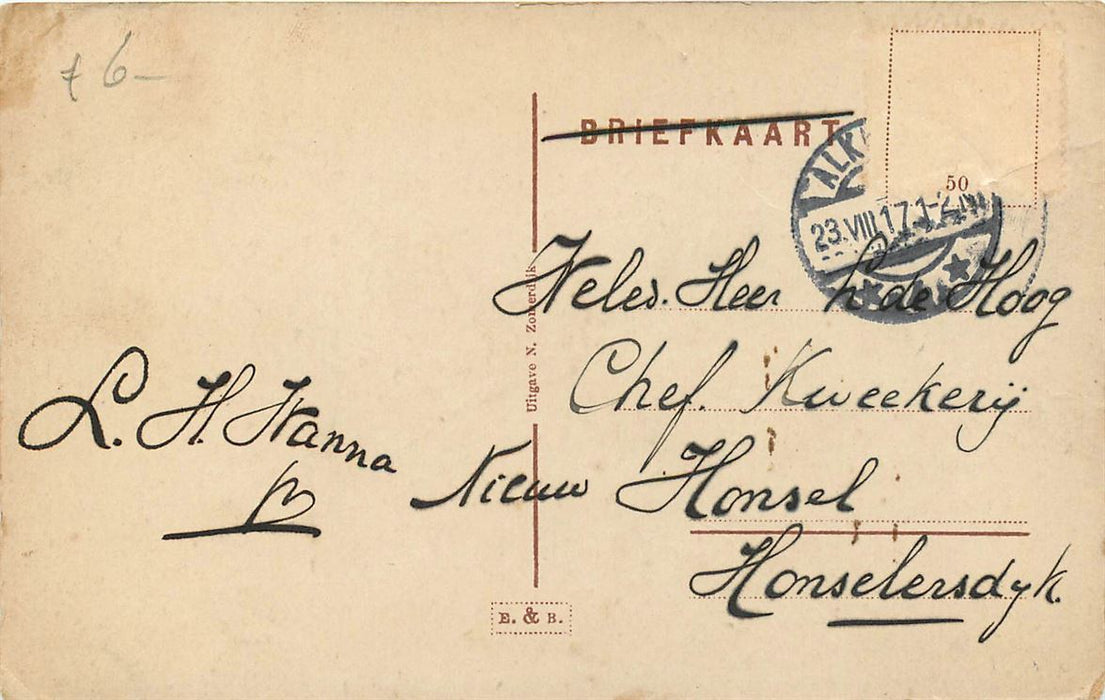 6-
BRIEFKAART
50
ALK
23.VIII.17.1-2.N
Uitgave N. Zomerdijk
Heer h de Hoog
Chef. Kweekerij
L. H. Hanna
Nieuw Honsel
Honselersdyk.
E. & B.